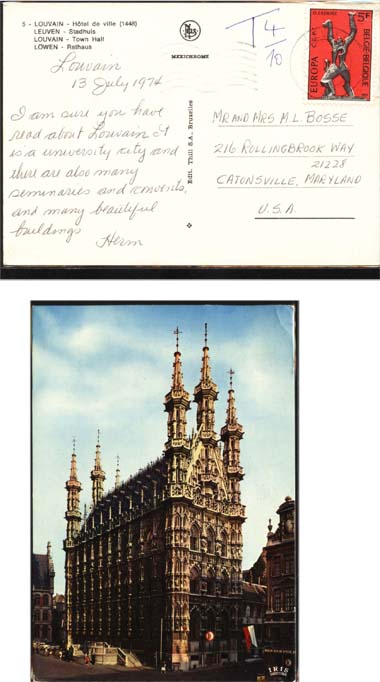 5 - LOUVAIN - Hôtel de ville (1448)
LEUVEN - Stadhuis
LOUVAIN - Town Hall
LÖWEN - Rathaus
MEXICHROME
Edit. Thill S.A., Bruxelles
T 4
10
EUROPA C.E.P.T.
BELGIE-BELGIQUE
5F
Louvain
13 July 1974
I am sure you have
read about Louvain it
is a university city and
there are also many
seminaries and convents,
and many beautiful
buildings
Herm
MR AND MRS M.L. BOSSE
216 ROLLINGBROOK WAY
21228
CATONSVILLE, MARYLAND
U.S.A.
IRIS